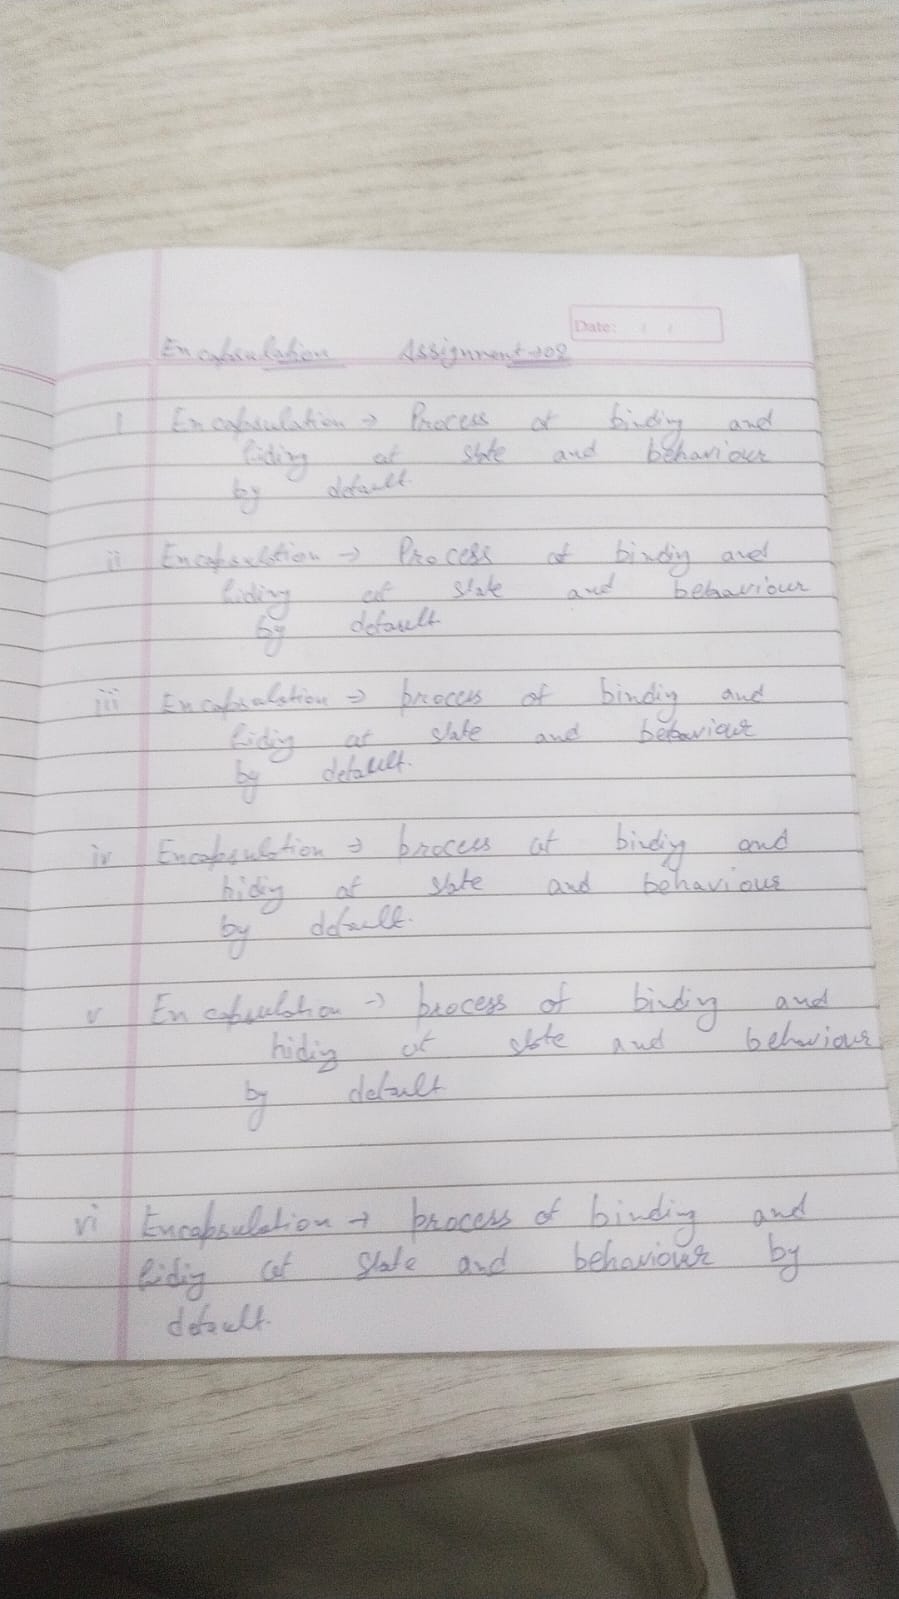 Date:
Encapsulation Assignment → 02
i Encapsulation → Process of binding and
hiding of state and behaviour
by default.
ii Encapsulation → Process of binding and
hiding of state and behaviour
by default.
iii Encapsulation → process of binding and
hiding of state and behaviour
by default.
iv Encapsulation → process of binding and
hiding of state and behaviour
by default.
v Encapsulation → process of binding and
hiding of state and behaviour
by default
vi Encapsulation → process of binding and
hiding of state and behaviour by
default.